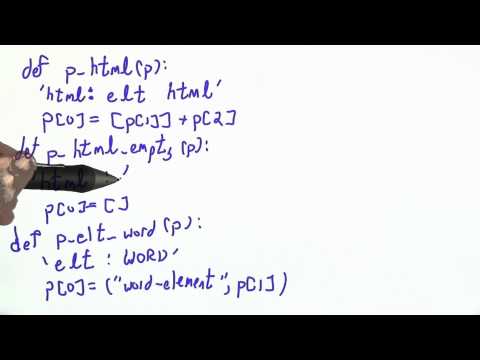 def p_html(p):
'html: elt html'
p[0] = [p[1]] + p[2]
def p_html_empty(p):
'html : '
p[0]=[]
def p_elt_word(p):
'elt : WORD'
p[0]=("word-element", p[1])